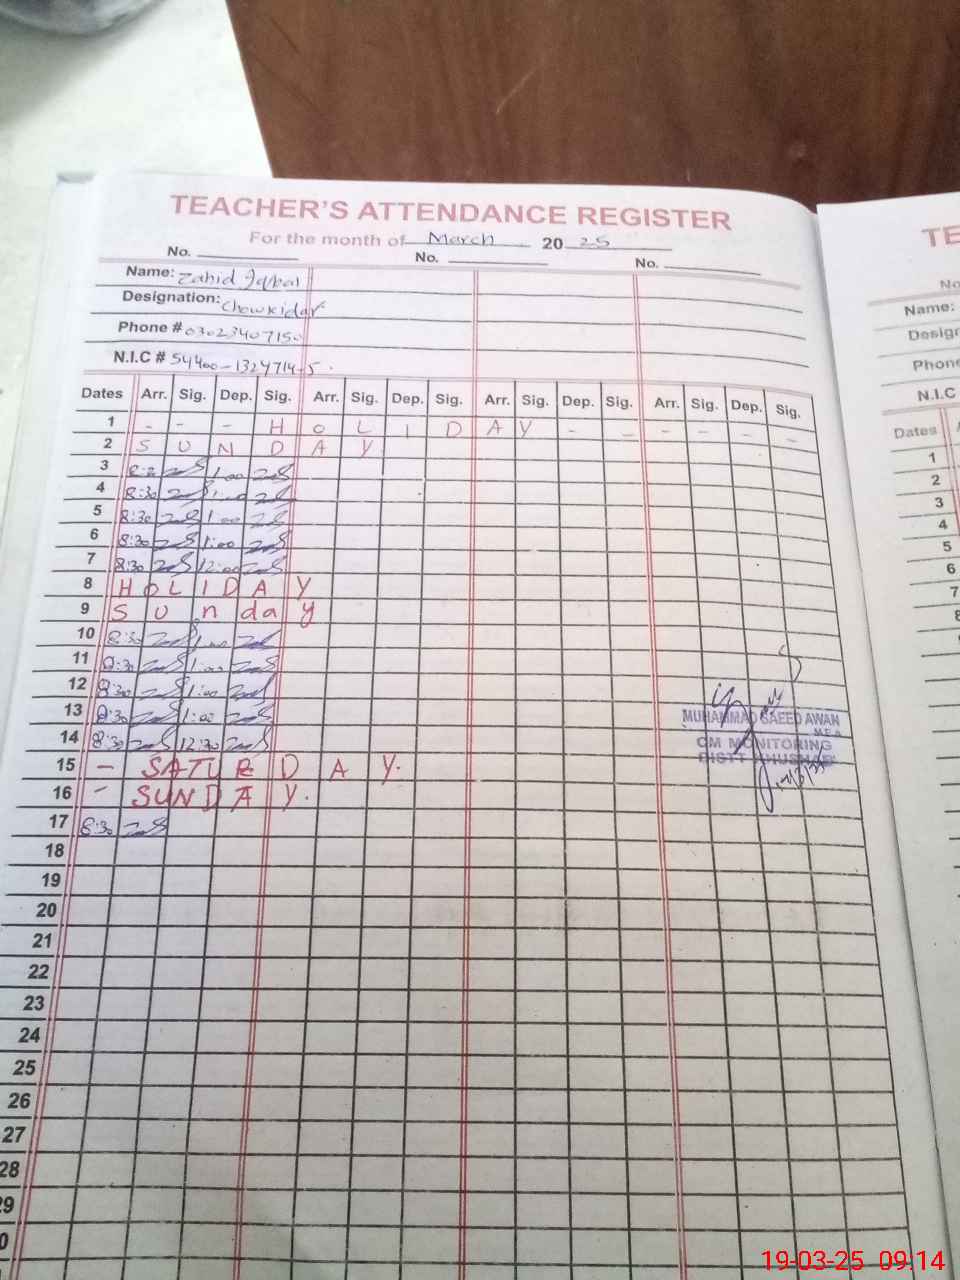 TEACHER'S ATTENDANCE REGISTER
For the month of March 2025
No. No. No.
Name: Zahid Iqbal
Designation: Chowkidar
Phone # 03023407150
N.I.C # 54400-1324714-5.
Dates Arr. Sig. Dep. Sig. Arr. Sig. Dep. Sig. Arr. Sig. Dep. Sig. Arr. Sig. Dep. Sig.
1 - - - H O L I D A Y - - - - - -
2 S U N D A Y
3 1:00
4 8:30
5 8:30 1:00
6 8:30 1:00
7 8:30 12:00
8 H O L I D A Y
9 S U n da y
10 8:30 1:00
11 8:30 1:00
12 8:30 1:00
13 8:30 1:00
14 8:30 12:30
15 - SATURDAY.
16 - SUNDAY.
17 8:30
18
19
20
21
22
23
24
25
26
27
28
29
0
MUHAMMAD SAEED AWAN
M.E.A
CM MONITORING
DISTT KHUSHAB
TE
No
Name:
Design
Phone
N.I.C
Dates
1
2
3
4
5
6
7
8
19-03-25 09:14